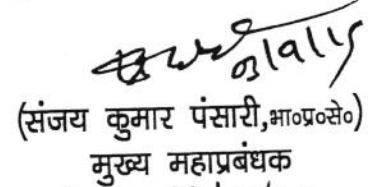 03/9/15
(संजय कुमार पंसारी,भा०प्र०से०)
मुख्य महाप्रबंधक